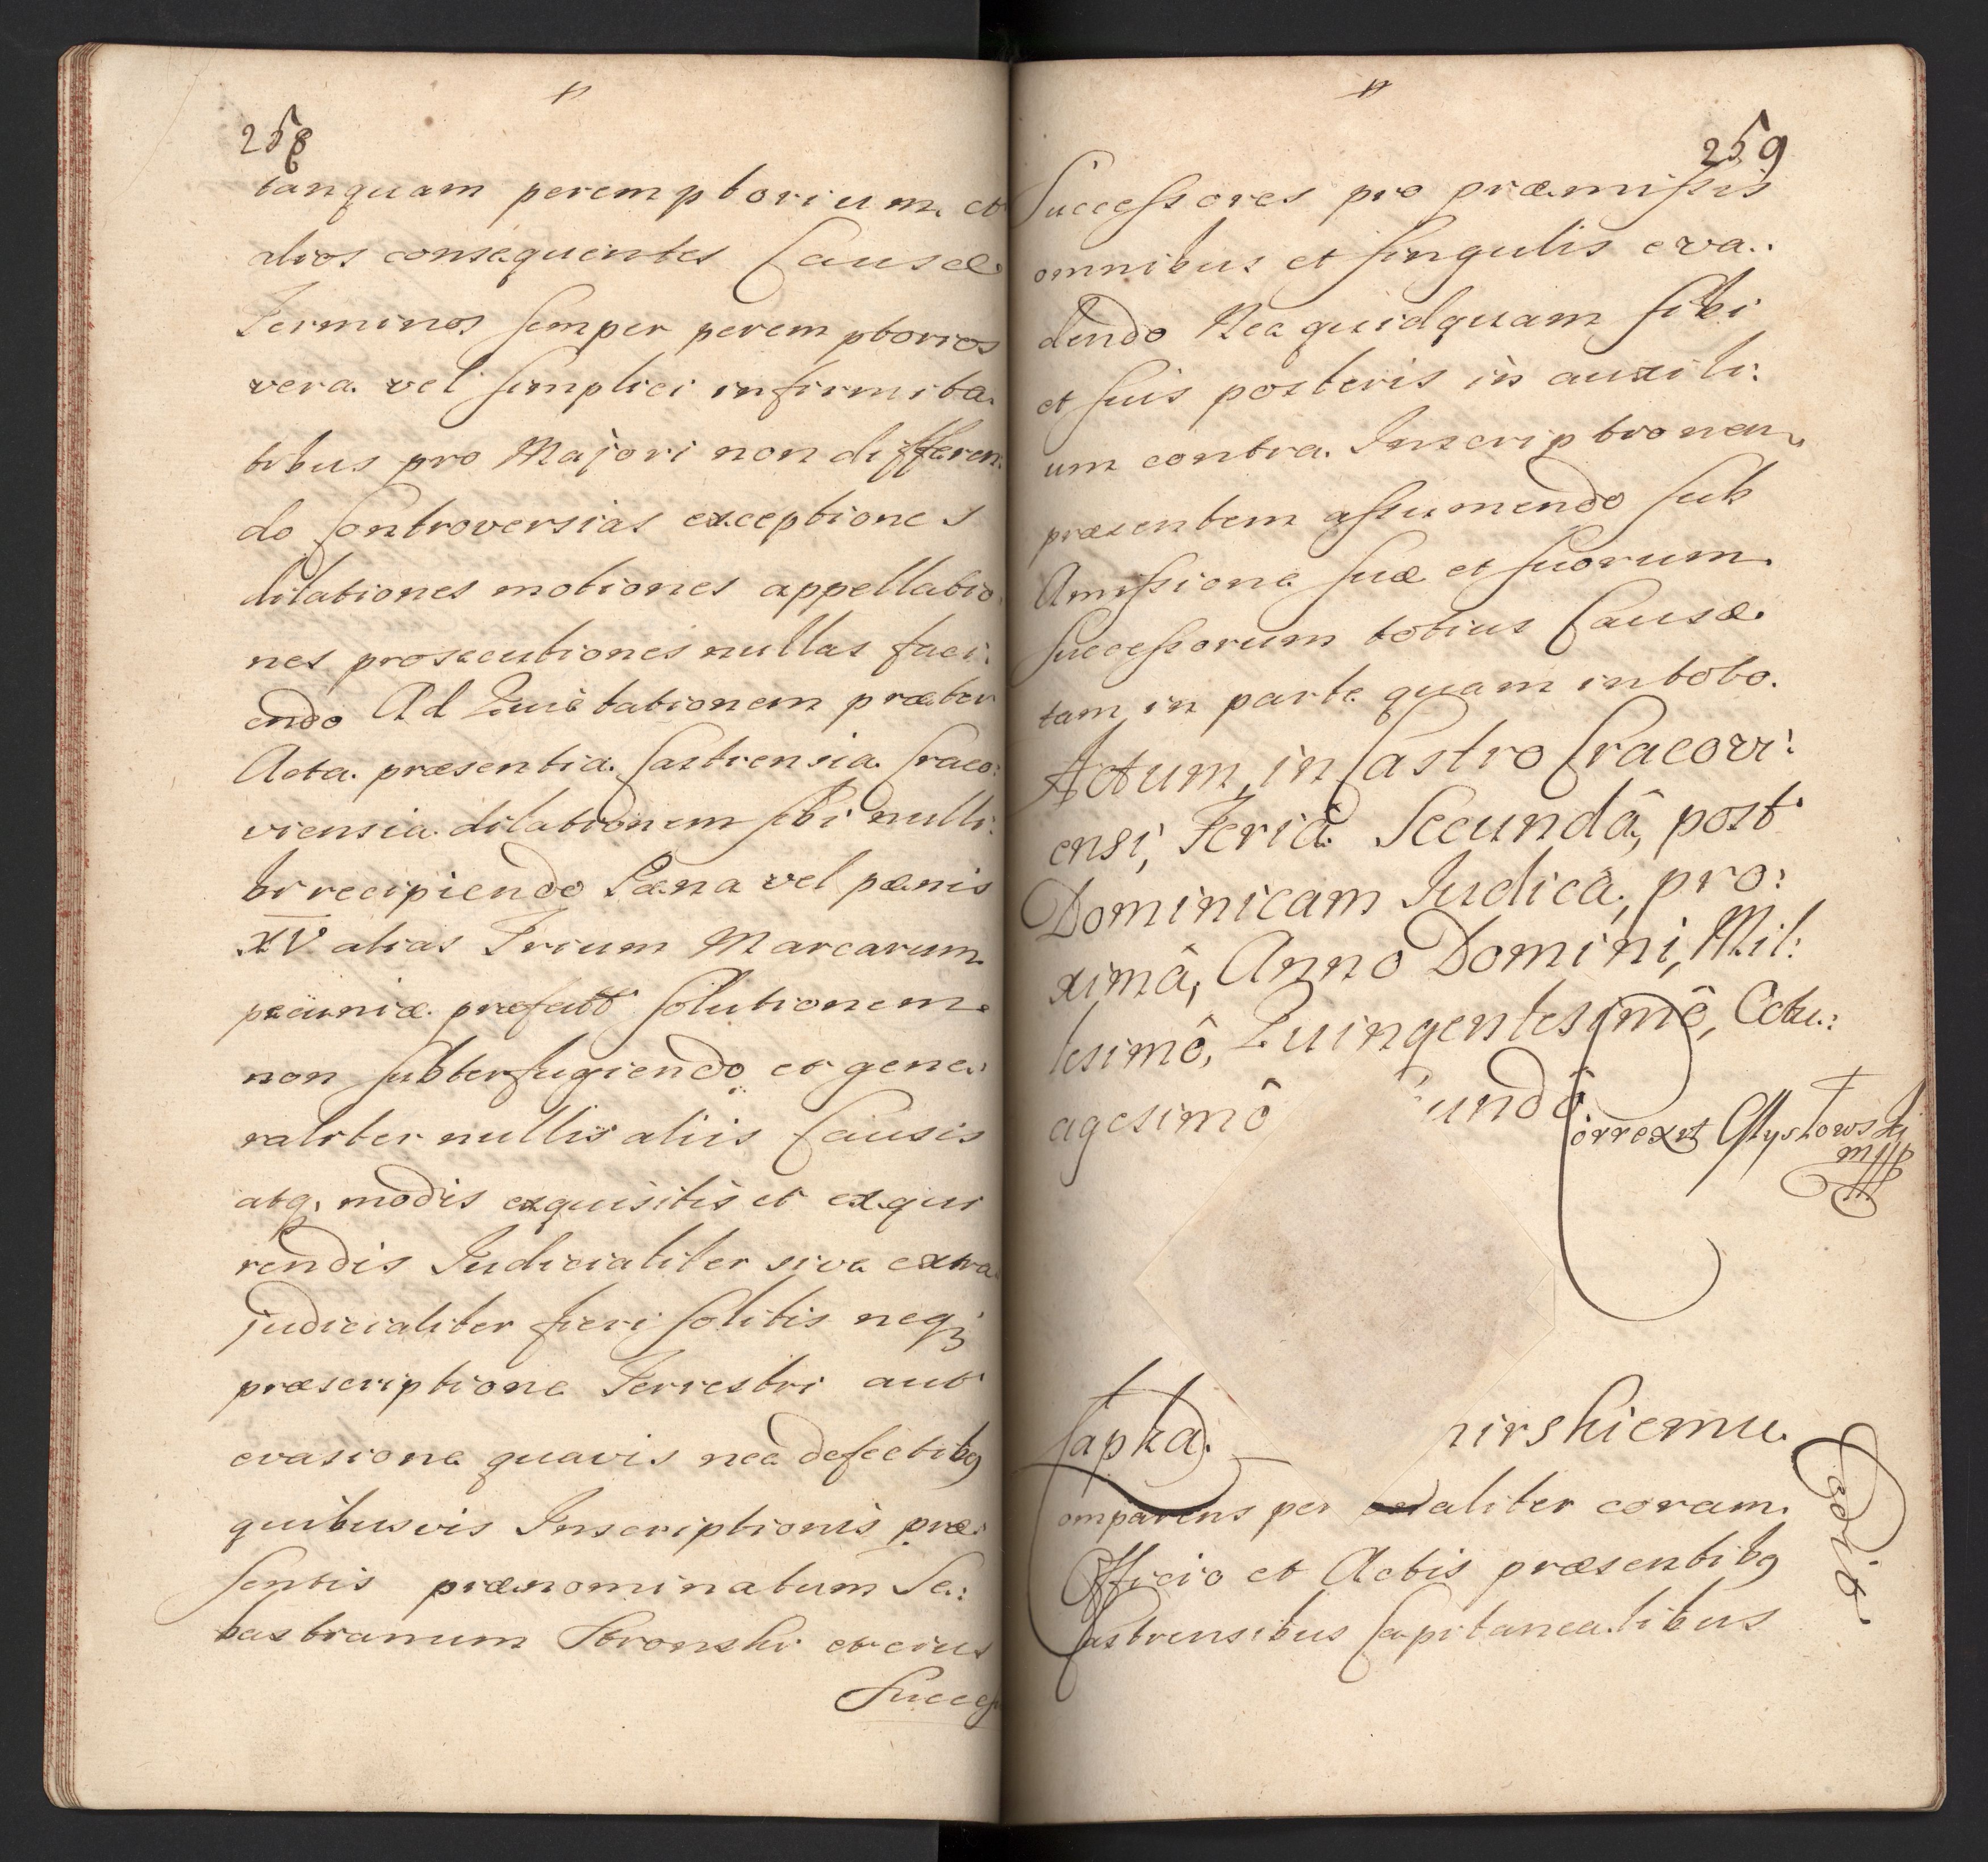 258
tanquam peremptorium et
alios consequentes Causæ
Terminos semper peremptorios
vera vel simplici infirmita.
tibus pro Majori non differen:
do Controversias exceptiones
dilationes motiones appellatio
nes prosecutiones nullas faci:
endo Ad Quietationem præter
Acta præsentia Castrensia Craco:
viensia dilationem sibi nulli:
bi recipiendo Pæna vel pænis
XV alias Trium Marcarum
pecuniæ præfatt solutionem
non subterfugiendo et gene:
raliter nullis aliis Causis
atq. modis exquisitis et exqui
rendis Judicialiter sive extra
judicialiter fieri solitis neqz
præscriptione Terrestri aut
evasione quavis nec defectibq
quibusvis Inscriptionis præ:
sentis prænominatum Se:
bastianum Stronski et eius
Success
259
Successores pro præmissis
omnibus et singulis eva:
dendo Nec quidquam sibi
et suis posteris in auxili:
um contra Inscriptionem
præsentem assumendo sub
Amissione suæ et suorum
successorum totius Causæ
tam in parte quam in toto.
Actum, in Castro Cracovi:
ensi, Feriâ Secundâ, post
Dominicam Judica, pro:
ximâ, Anno Domini, Mil:
lesimô, Quingentesimô, Octu:
agesimô undô
Correxit
Czapka nirskiemu
Comparens per aliter coram
Officio et Actis præsentibq
Castrensibus Capitanealibus
Cedit